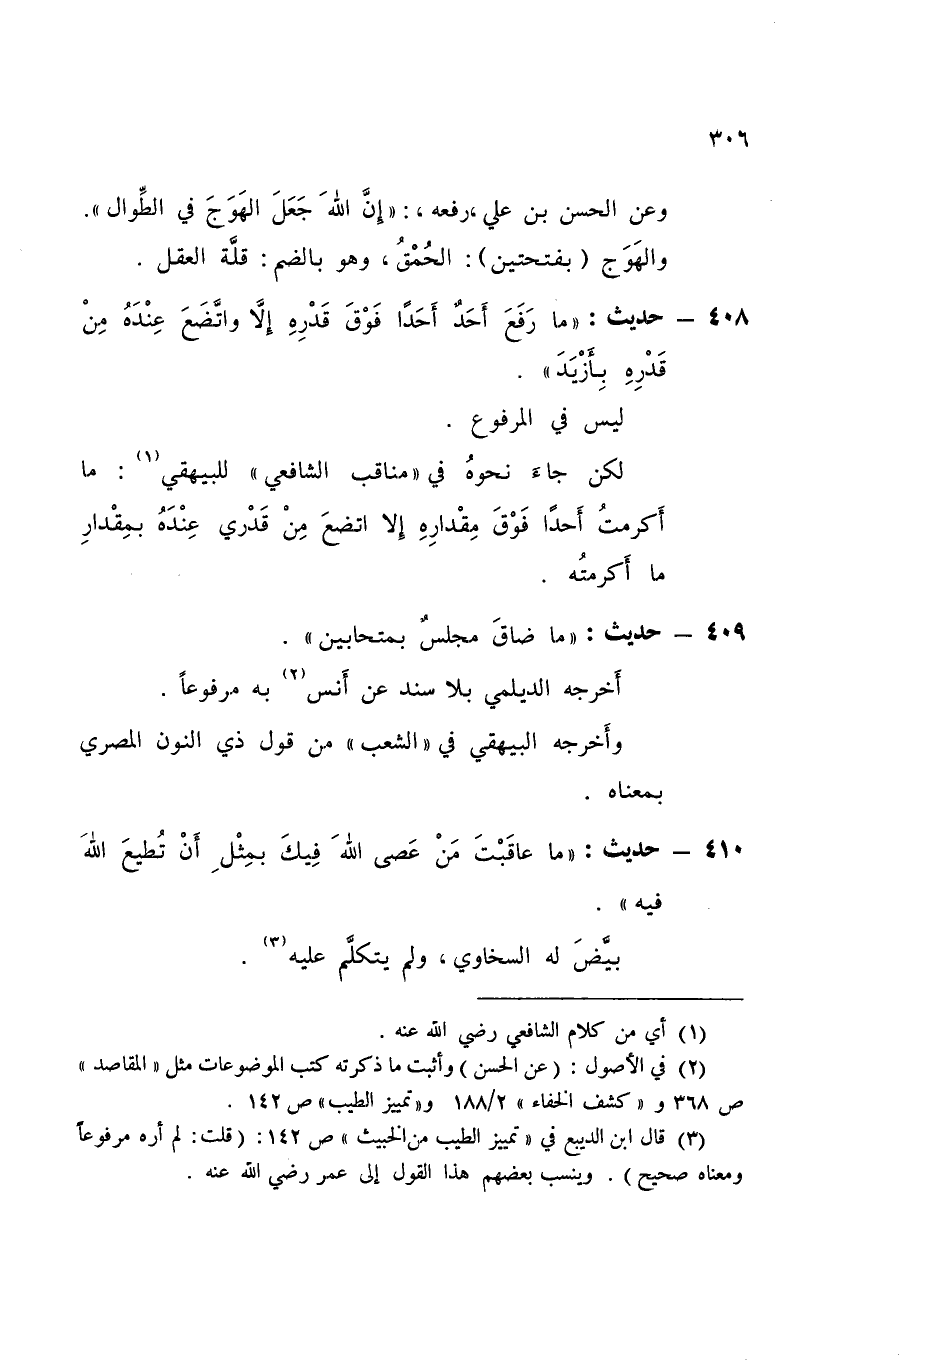 ٣٠٦
وعن الحسن بن علي ، رفعه ، : « إِنَّ اللهَ جَعَلَ الهَوَجَ في الطِّوال ».
والهَوَج ( بفتحتين ) : الحُمْقُ ، وهو بالضم : قلَّة العقل .
٤٠٨ – حديث : « ما رَفَعَ أَحَدٌ أَحَدًا فَوْقَ قَدْرِهِ إِلَّا واتَّضَعَ عِنْدَهُ مِنْ
قَدْرِهِ بِأَزْيَدَ » .
ليس في المرفوع .
لكن جاءَ نحوهُ في « مناقب الشافعي » للبيهقي (١) : ما
أَكرمتُ أَحدًا فَوْقَ مِقْدارِهِ إِلا اتضعَ مِنْ قَدْري عِنْدَهُ بمِقْدارِ
ما أَكرمتُه .
٤٠٩ – حديث : « ما ضاقَ مجلسٌ بمتحابين » .
أَخرجه الديلمي بلا سند عن أَنس (٢) به مرفوعاً .
وأَخرجه البيهقي في « الشعب » من قول ذي النون المصري
بمعناه .
٤١٠ – حديث : « ما عاقَبْتَ مَنْ عَصى اللهَ فِيكَ بمِثْلِ أَنْ تُطيعَ اللهَ
فيه » .
بيَّضَ له السخاوي ، ولم يتكلَّم عليه (٣) .
(١) أي من كلام الشافعي رضي الله عنه .
(٢) في الأصول : ( عن الحسن ) وأثبت ما ذكرته كتب الموضوعات مثل « المقاصد »
ص ٣٦٨ و « كشف الخفاء » ١٨٨/٢ و« تمييز الطيب » ص ١٤٢ .
(٣) قال ابن الديبع في « تمييز الطيب من الخبيث » ص ١٤٢ : ( قلت : لم أره مرفوعاً
ومعناه صحيح ) . وينسب بعضهم هذا القول إلى عمر رضي الله عنه .